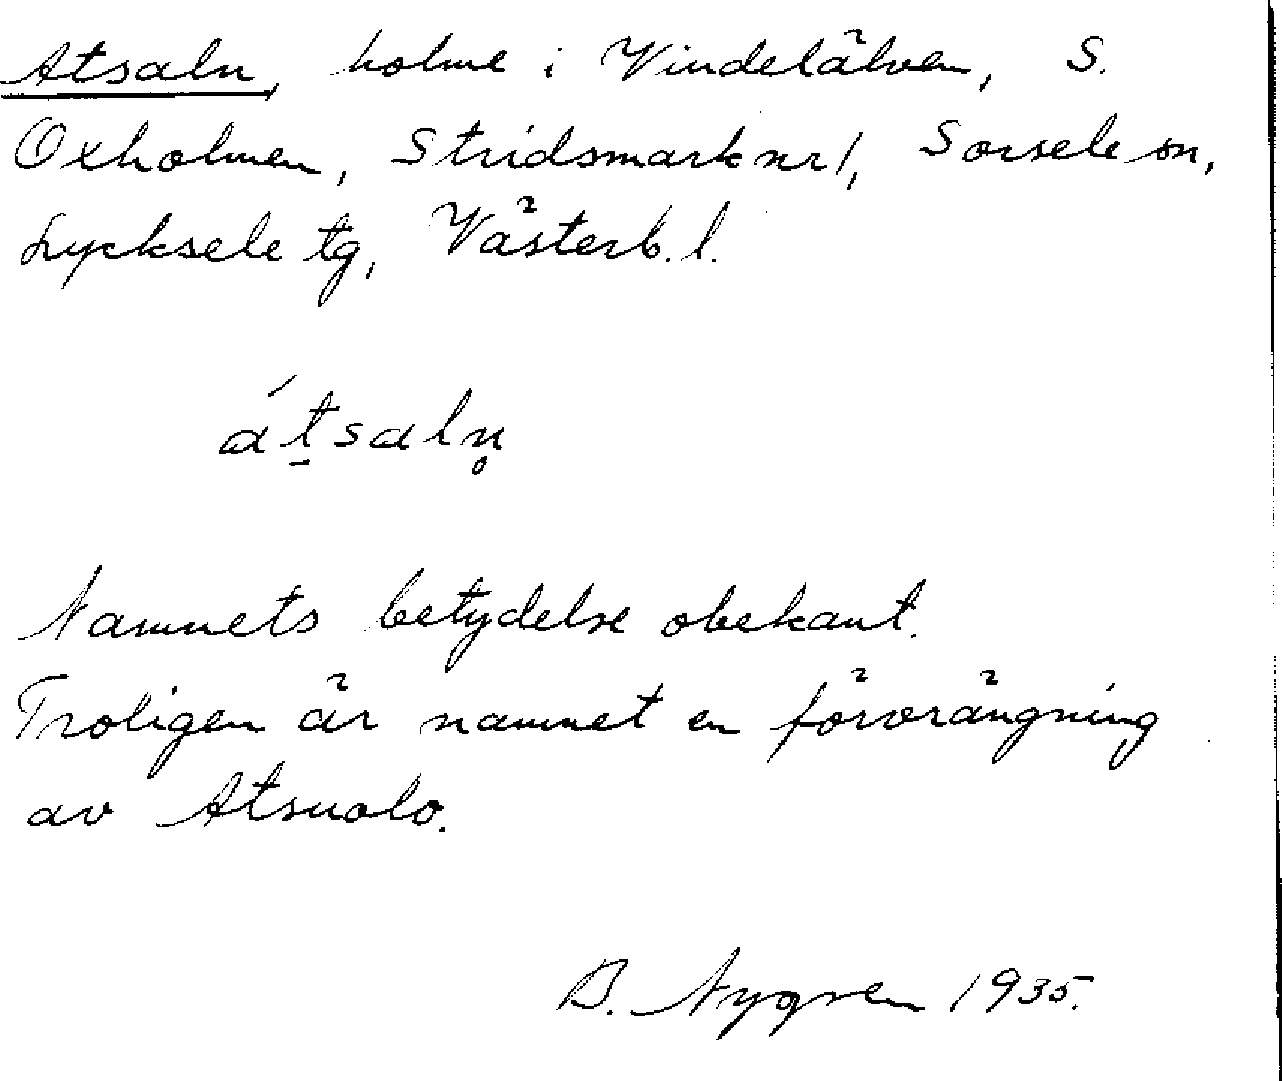 Atsaln, holme i Vindelälven, S.
Oxholmen, Stridsmark nr 1, Sorsele sn,
Lycksele tg, Västerb. l.
át̠saln̥
Namnets betydelse obekant.
Troligen är namnet en förvrängning
av Atsuolo.
B. Nygren 1935.